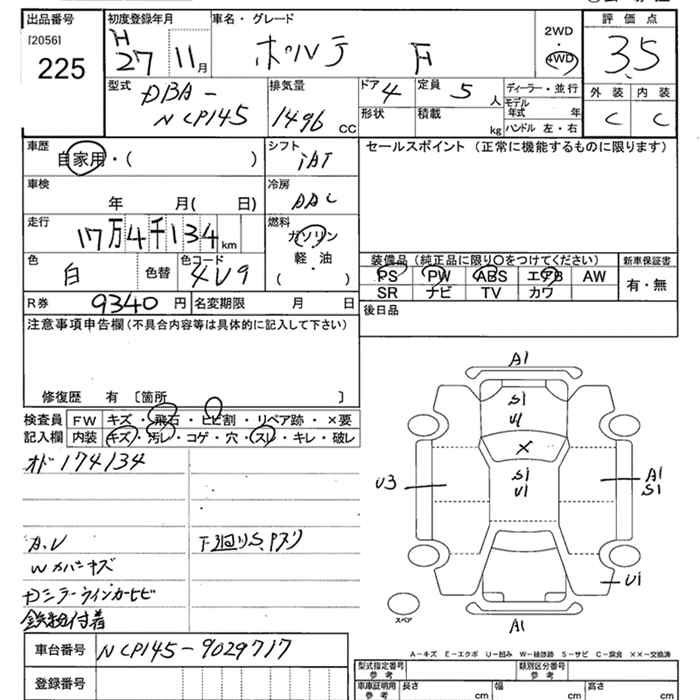 出品番号 初度登録年月 車名・グレード 評価点
[2056] H 27 11月 ポルテ F 2WD 4WD 3.5
225
型式 排気量 ドア 4 定員 5 人 ディーラー・並行 外装 内装
DBA- モデル年式 年 C C
NCP145 1496 CC 形状 積載 kg ハンドル 左・右
車歴 シフト セールスポイント (正常に機能するものに限ります)
自家用・( ) IAT
車検 冷房
年 月( 日) AAC
走行 燃料
17万4千134 km ガソリン
色 色コード 軽・油 装備品 (純正品に限り○をつけてください) 新車保証書
白 色替 4U9 ( ) PS PW ABS エアB AW 有・無
SR ナビ TV カワ
R券 9340 円 名変期限 月 日 後日品
注意事項申告欄 (不具合内容等は具体的に記入して下さい)
修復歴 有 〔箇所 〕
検査員 FW キズ・飛石・ヒビ割・リペア跡・×要
記入欄 内装 キズ・汚レ・コゲ・穴・スレ・キレ・破レ
オド174134
A.U 下廻りS.Pズリ
Wカバーキズ
Dミラーウインカーヒビ
鉄粉付着
車台番号 NCP145-9029717
登録番号
A1
S1
U
×
S1
U1
U3
A1
S1
U1
A1
スペア
A-キズ E-エクボ U-凹み W-補修跡 S-サビ C-腐食 ××-交換済
型式指定番号 参考 類別区分番号 参考
車庫証明用 参考 長さ cm 幅 cm 高さ cm